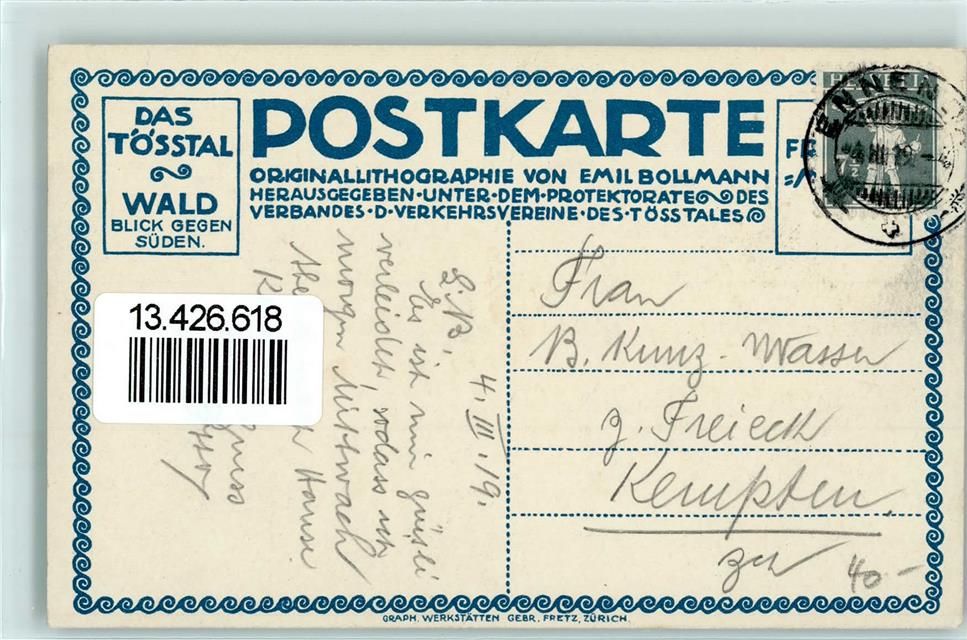 DAS
TÖSSTAL
WALD
BLICK GEGEN
SÜDEN.
POSTKARTE
ORIGINALLITHOGRAPHIE VON EMIL BOLLMANN
HERAUSGEGEBEN · UNTER · DEM · PROTEKTORATE DES
VERBANDES · D · VERKEHRSVEREINE · DES · TÖSSTALES
HELVETIA
ENNEN
4 III 19
13.426.618
4. III. 19.
L. B.
Es ist mir
verleidet, sodass ich
morgen Mittwoch
Hause
Gruss
Frau
B. Kunz-Wasser
z. Freieck
Kempten.
Zch
40-
GRAPH. WERKSTÄTTEN GEBR. FRETZ, ZÜRICH.